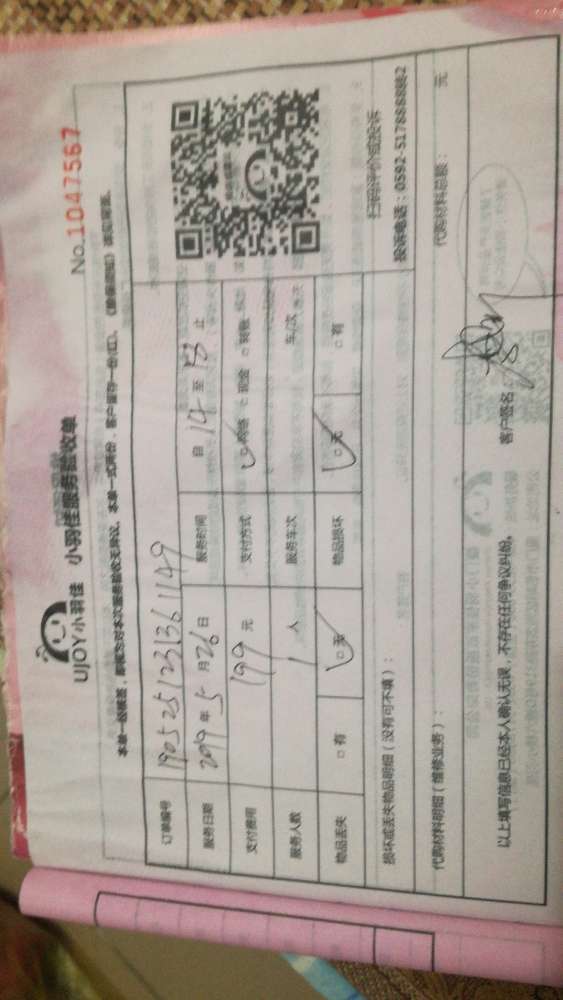 UJOY小羽佳 小羽佳服务验收单
No.1047567
本单一经签署，即视为对本次服务验收无异议。本单一式两份，客户留存一份(红)。
订单编号 190525123136 1149
服务日期 2019年5月26日 服务时间 自 14 至 18 止
支付费用 199 元 支付方式 网络 □现金 □转账
服务人数 1 人 服务车次 车/次
物品丢失 □有 □无 物品损坏 □无 □有
扫码评价或投诉
损坏或丢失物品明细（没有可不填）：
投诉电话：0592-5178888转2
代购材料明细（维修业务）： 代购材料总额： 元
以上填写信息已经本人确认无误，不存在任何争议纠纷。 客户签名：